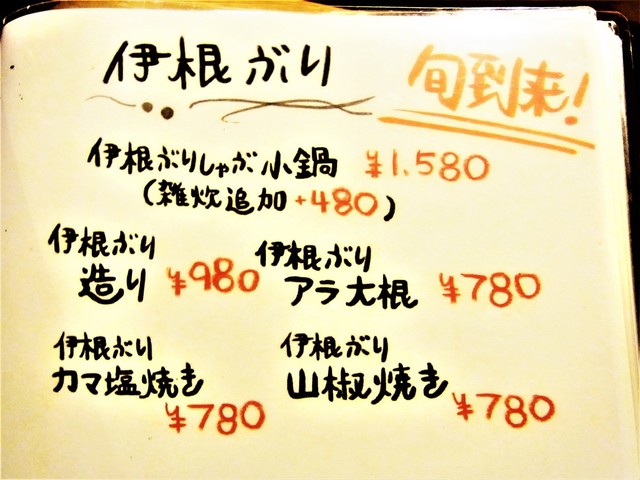 伊根ぶり
旬到来!
伊根ぶりしゃぶ小鍋 ¥1.580
(雑炊追加+480)
伊根ぶり
造り ¥980
伊根ぶり
アラ大根 ¥780
伊根ぶり
カマ塩焼き
¥780
伊根ぶり
山椒焼き
¥780